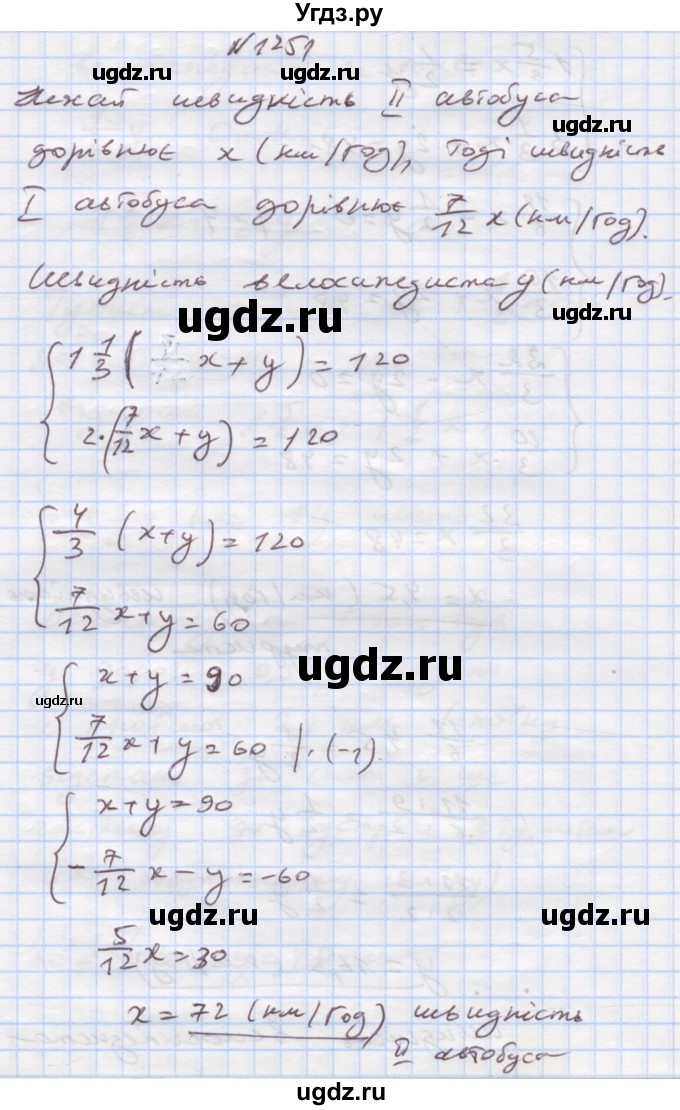 Угдз.ру
№1251
ugdz.ru
Нехай швидкість II автобуса
ugdz.ru
дорівнює x (км/год), тоді швидкість
I автобуса дорівнює 7/12 x (км/год).
ugdz.ru
Швидкість велосипедиста y (км/год).
ugdz.ru
{ 1 1/3 ( x + y ) = 120
2·(7/12 x + y) = 120
ugdz.ru
{ 4/3 (x+y) = 120
ugdz.ru
7/12 x + y = 60
ugdz.ru
{ x + y = 90
ugdz.ru
7/12 x + y = 60 |·(-1).
{ x + y = 90
- 7/12 x - y = -60
ugdz.ru
ugdz.ru
5/12 x = 30
x = 72 (км/год) швидкість
II автобуса
ugdz.ru